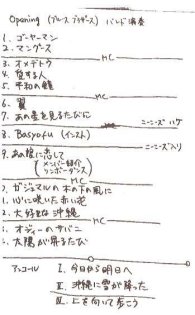 Opening (ブルース ブラザーズ) バンド演奏
1. ゴーヤーマン
2. マングース
MC
3. オメデトウ
4. 愛する人
5. 平和の鐘
MC
6. 翼
7. あの星を見るたびに
ニーニーズ ハケ
8. Basyofu (インスト)
ニーニーズ入り
9. あの 恋して
(メンバー紹介
リンボーダンス)
MC
ガジュマルの木の下の風に
心に咲いた赤い花
大好きな沖縄
MC
オジィーのサバニ
太陽が昇るたび
アンコール I. 今日から明日へ
II. 沖縄に雪が降った
III. 上を向いて歩こう